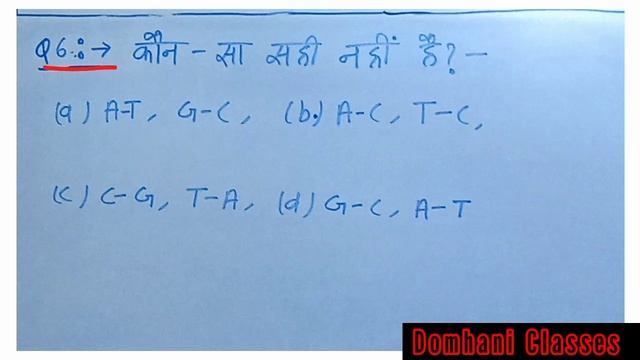 Q6.:→ कौन-सा सही नहीं है?-
(a) A-T, G-C, (b.) A-C, T-C,
(c) C-G, T-A, (d) G-C, A-T
Dombani Classes